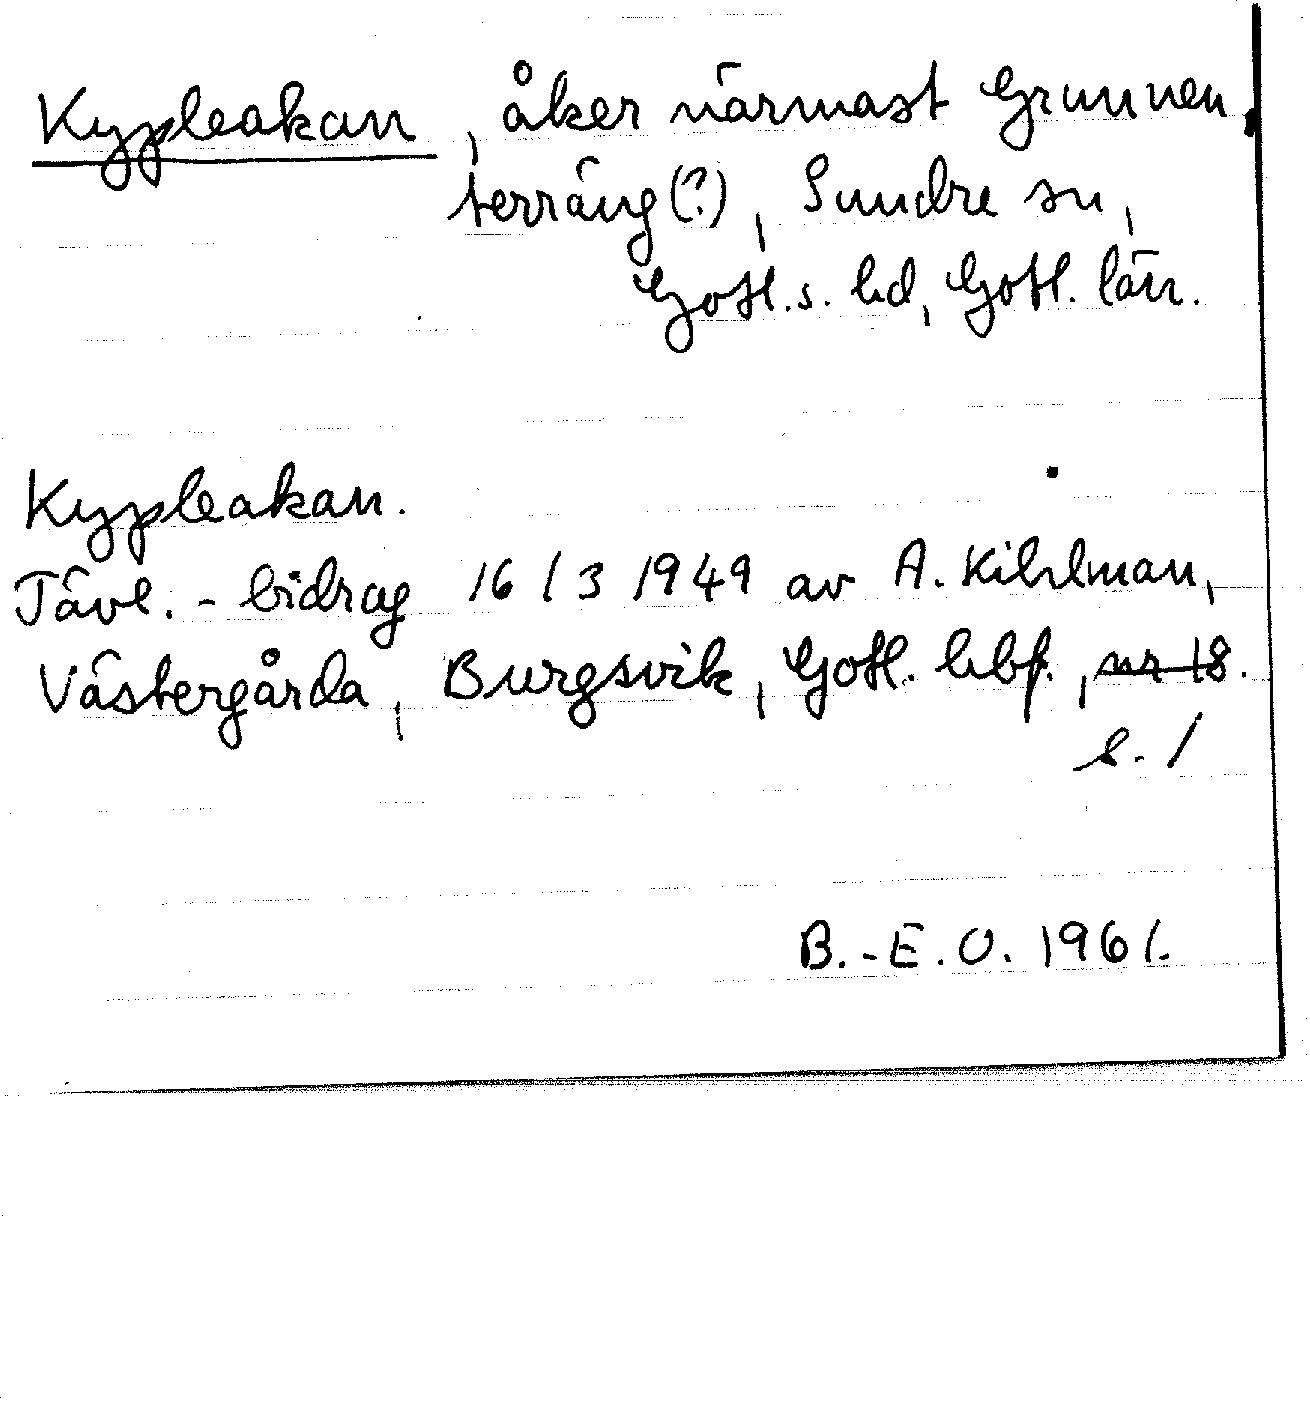 Kypleakan, åker närmast Grunnen
terräng(?), Sundre sn,
Gotl. s. hd, Gotl. län.
Kypleakan.
Tävl.-bidrag 16/3 1949 av A. Kihlman,
Västergårda, Burgsvik, Gotl. hbf., nr 18.
s. 1
B.-E.O. 1961.